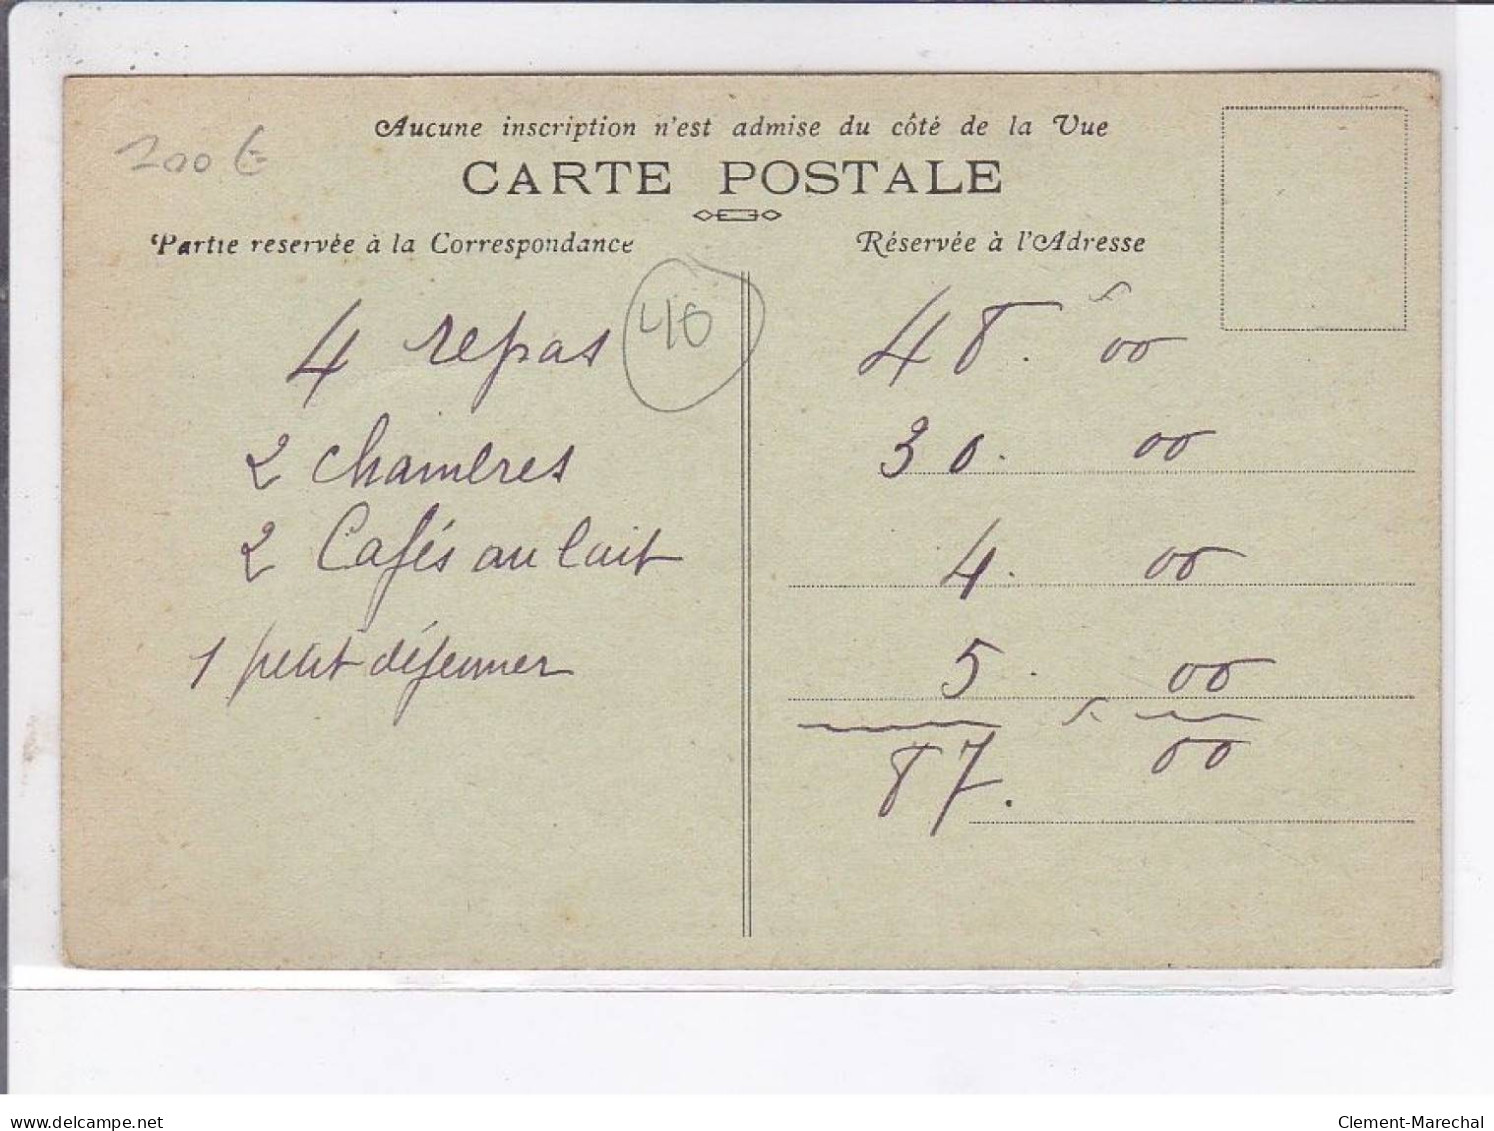 200 €
Aucune inscription n'est admise du côté de la Vue
CARTE POSTALE
Partie reservée à la Correspondance
Réservée à l'Adresse
40
4 repas 48. 00
2 chambres 30. 00
2 Cafés au lait 4. 00
1 petit déjeuner 5. 00
87. 00
delcampe.net
Clement-Marechal